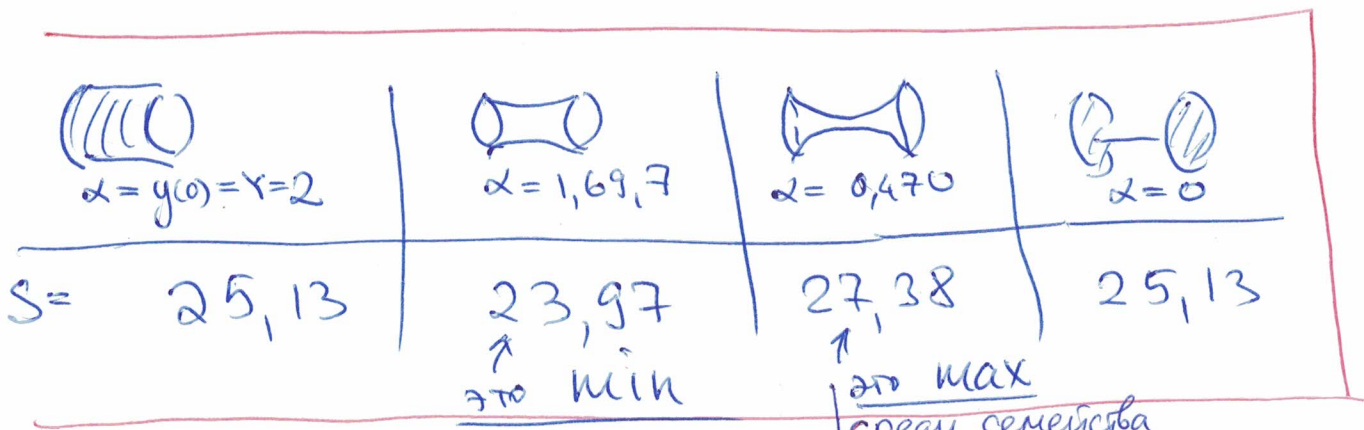 α = y(0) = r = 2
α = 1,69,7
α = 0,470
α = 0
S= 25,13
23,97
27,38
25,13
↑ это min
↑ это max
среди семейства